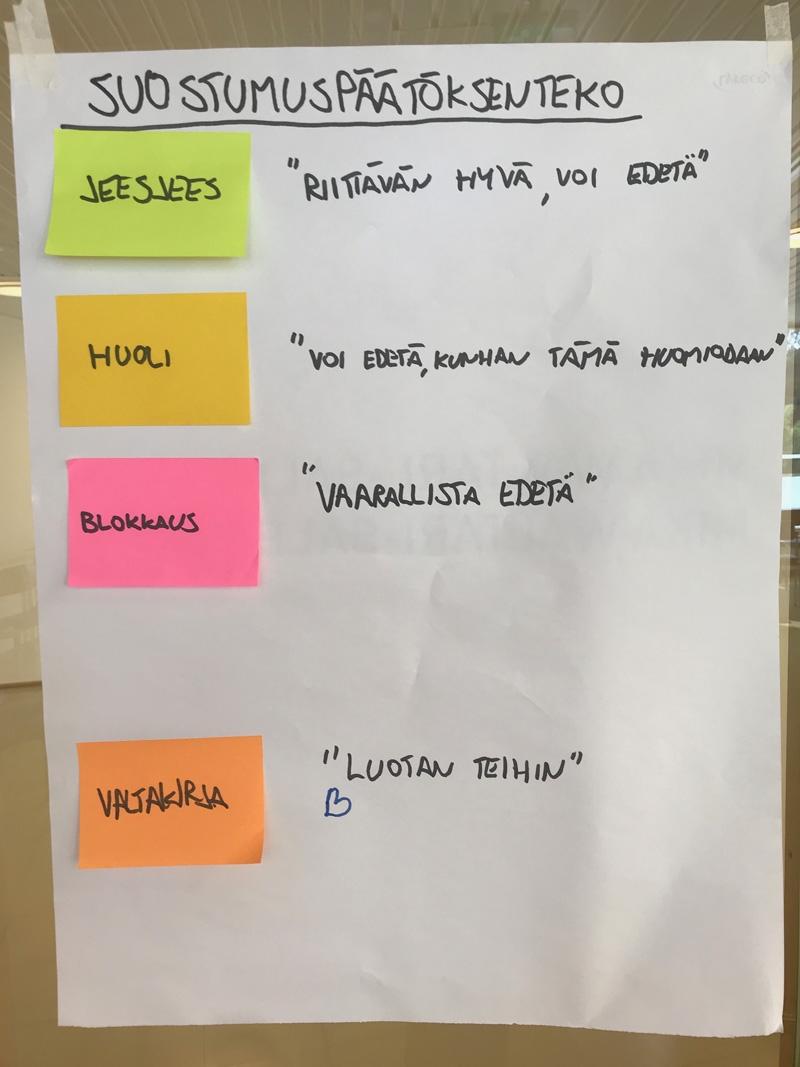 SUOSTUMUSPÄÄTÖKSENTEKO
JEESJEES
"RIITTÄVÄN HYVÄ, VOI EDETÄ"
HUOLI
"VOI EDETÄ, KUNHAN TÄMÄ HUOMIODAAN"
BLOKKAUS
"VAARALLISTA EDETÄ"
VALTAKIRJA
"LUOTAN TEIHIN"